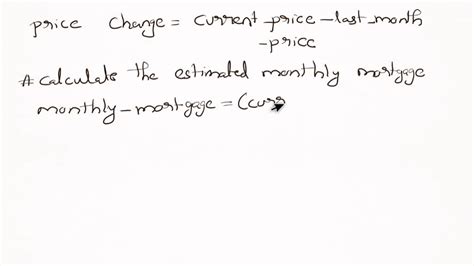 price change = current_price - last_month
-price
# calculate the estimated monthly mortgage
monthly_mortgage = (curr